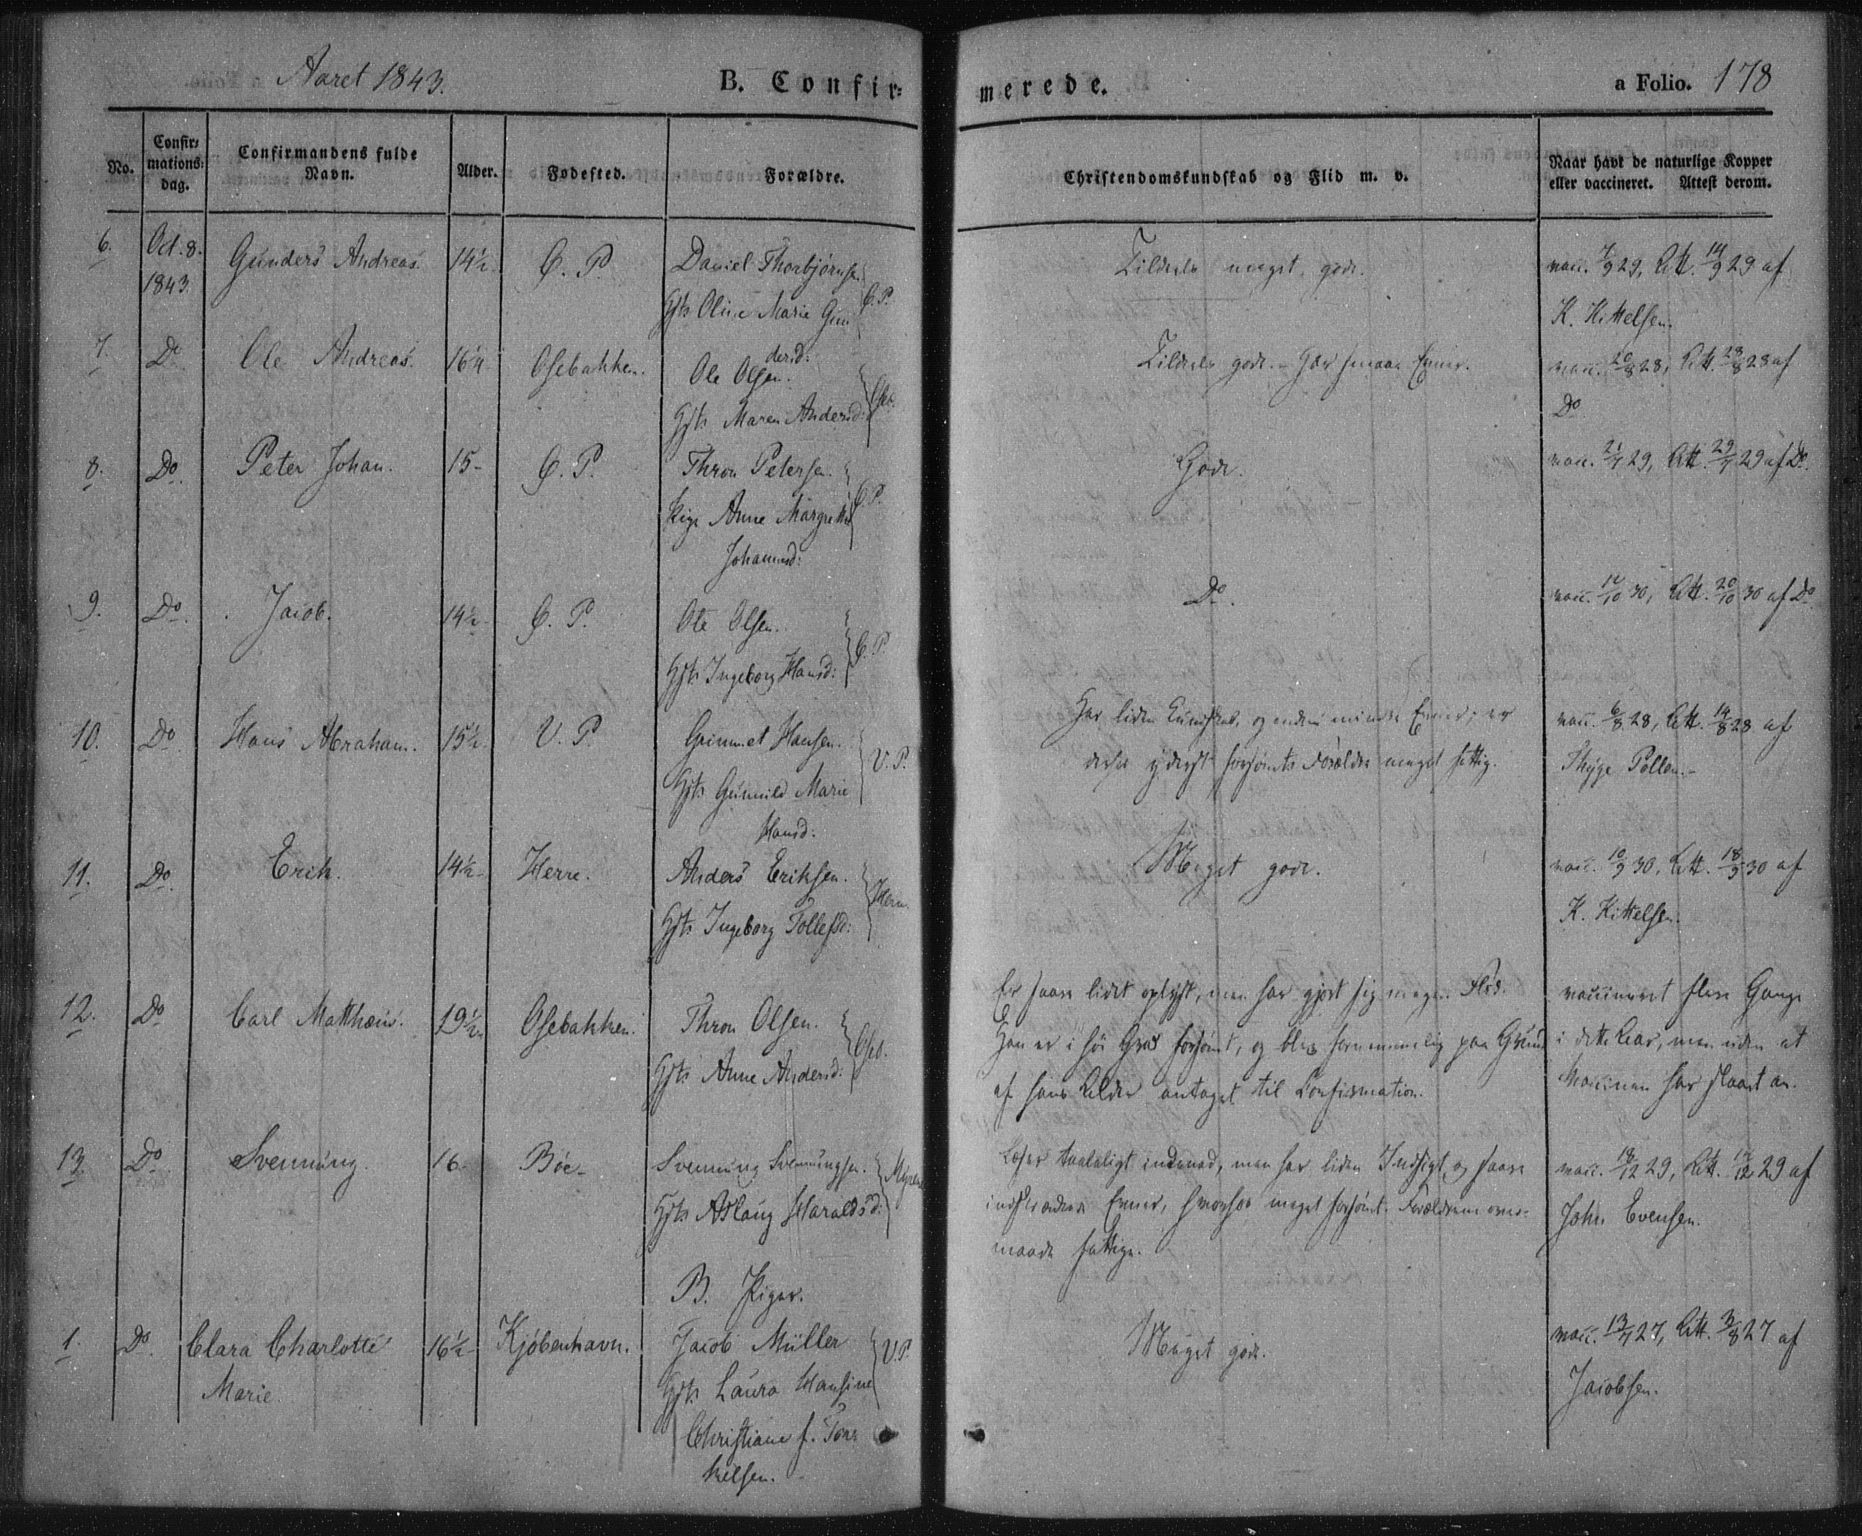 Aaret 1843. B. Confirmerede. a Folio. 178
No. Confirmationsdag. Confirmandens fulde Navn. Alder. Fødested. Forældre. Christendomskundskab og Flid m. v. Naar havt de naturlige Kopper eller vaccineret. Attest derom.
6. Oct. 8. Gunders Andreas. 14½ Daniel Thorbjørnsen Tildeels meget god. vacc. 7/9 29, Att. 14/9 29 af
1843 Gfts Oline Marie Gun K. Kittelsen.
dersd:
7. Do Ole Andreas. Osebakken. Ole Olsen. Tildeels god. - Har smaa Evner. vacc. 20/8 28, Att. 28/8 28 af
Gfts Maren Andersd: Do
8. Do. Peter Johan. 15- Thron Petersen. God. vacc. 29, Att. 29 af Do.
Pige Anne Margrethe
Johannesd:
9. Do. Jacob. 14½ Ole Olsen. Do. vacc. 30, Att. 20/10 30 af Do
Gfts Ingeborg Hansd:
10. Do Hans Abraham. 15½ V. P. Grimmet Hansen. V. P. Har liden Kundskab, og endnu mindre Evner; er vacc. 6/8 28, Att. 14/8 28 af
Gfts Gunnild Marie yderst forsømt. Forældre meget fattig. Thyge Pollen.-
Hansd:
11. Do. Erik. 14½ Herre. Anders Eriksen. Herre. Meget god. vacc. 10/9 30, Att. 18/9 30 af
Gfts Ingeborg Tollefsd: K. Kittelsen.
12. Do Carl Matthæus. 19½ Osebakken. Thron Olsen. Oseb. Er saare lidet oplyst, men har gjort sig megen Flid. vaccineret flere Gange
Gfts Anne Andersd: Han er i høi Grad forsømt, og blev fornemmelig paa Grund i dette Aar, men uden at
af hans Alder antaget til Confirmation. Vaccinen har slaaet an.
13. Do Svennung 16- Böe- Svennung Svennungsen. Myren Læser taaleligt indenad, men har liden Indsigt og saare vacc. 18/12 29, Att. 29 af
Gfts Aslaug Haraldsd: indskrænkede Evner, hvorhos meget forsømt. Forældrene over- John Evensen.
maade fattige.
B. Piger.
1. Do. Clara Charlotte 16½ Kjöbenhavn. Jacob Müller V. P. Meget god. vacc. 13/7 27, Att. 3/8 27 af
Marie. Gfts Laura Hansine Jacobsen.
Christiane f. Tor
kelsen.